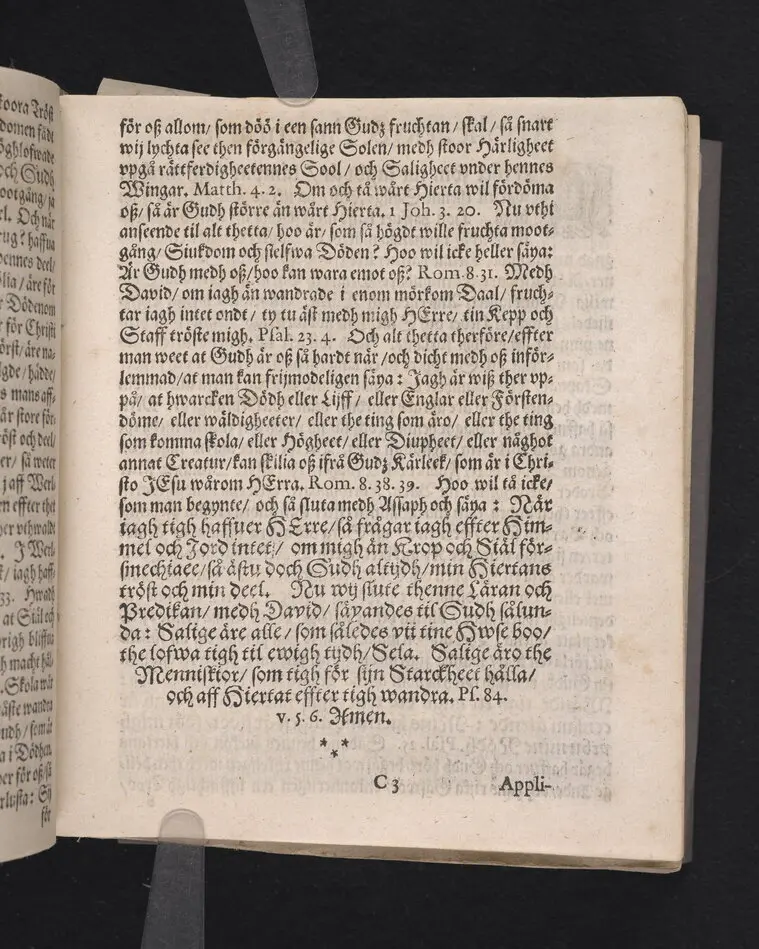 koora Tröst
domen fädt
öghlofwade
och Gudh
ootgång/ ja
el. Och när
rug? haffua
hennes deel/
lia/ äre för
Dödenom
r för Christi
örst/ äre na-
lgde/ hadde/
s mans aff-
är store för-
röst och deel/
er/ så weter
j aff Werl-
n effter thet
er vthwald
. J Werl-
k/ iagh haff-
33. Hwadh
at Siäl och
righ bliffua
h macht häl-
. Skola wår
äste wandra
udh/ som är
a i Döden
er för oß/ så
rlusta: Sij
för
för oß allom/ som döö i een sann Gudz fruchtan/ skal/ så snart
wij lychta see then förgängelige Solen/ medh stoor Härligheet
vpgå rättferdigheetennes Sool/ och Saligheet vnder hennes
Wingar. Matth. 4. 2. Om och tå wårt Hierta wil fördöma
oß/ så är Gudh större än wårt Hierta. 1 Joh. 3. 20. Nu vthi
anseende til alt thetta/ hoo är/ som så högdt wille fruchta moot-
gång/ Siukdom och sielfwa Döden? Hoo wil icke heller säya:
Är Gudh medh oß/ hoo kan wara emot oß? Rom. 8. 31. Medh
David/ om iagh än wandrade i enom mörkom Daal/ fruch-
tar iagh intet ondt/ ty tu äst medh migh HErre/ tin Kepp och
Staff tröste migh. Psal. 23. 4. Och alt thetta therföre/ effter
man weet at Gudh är oß så hardt när/ och dicht medh oß inför-
lemmad/ at man kan frijmodeligen säya: Jagh är wiß ther vp-
på/ at hwarcken Dödh eller Lijff/ eller Englar eller Försten-
döme/ eller wäldigheeter/ eller the ting som äro/ eller the ting
som komma skola/ eller Högheet/ eller Diupheet/ eller någhot
annat Creatur/ kan skilia oß ifrå Gudz Kärleek/ som är i Chri-
sto JEsu wårom HErra. Rom. 8. 38. 39. Hoo wil tå icke/
som man begynte/ och så sluta medh Assaph och säya: När
iagh tigh haffuer HErre/ så frågar iagh effter Him-
mel och Jord intet/ om migh än Krop och Siäl för-
smechtaee/ så ästu doch Gudh altijdh/ min Hiertans
tröst och min deel. Nu wij slute thenne Läran och
Predikan/ medh David/ säyandes til Gudh sålun-
da: Salige äre alle/ som således vti tine Hwse boo/
the lofwa tigh til ewigh tijdh/ Sela. Salige äro the
Menniskior/ som tigh för sijn Starckheet hålla/
och aff Hiertat effter tigh wandra. Ps. 84.
v. 5. 6. Amen.
***
C 3 Appli-